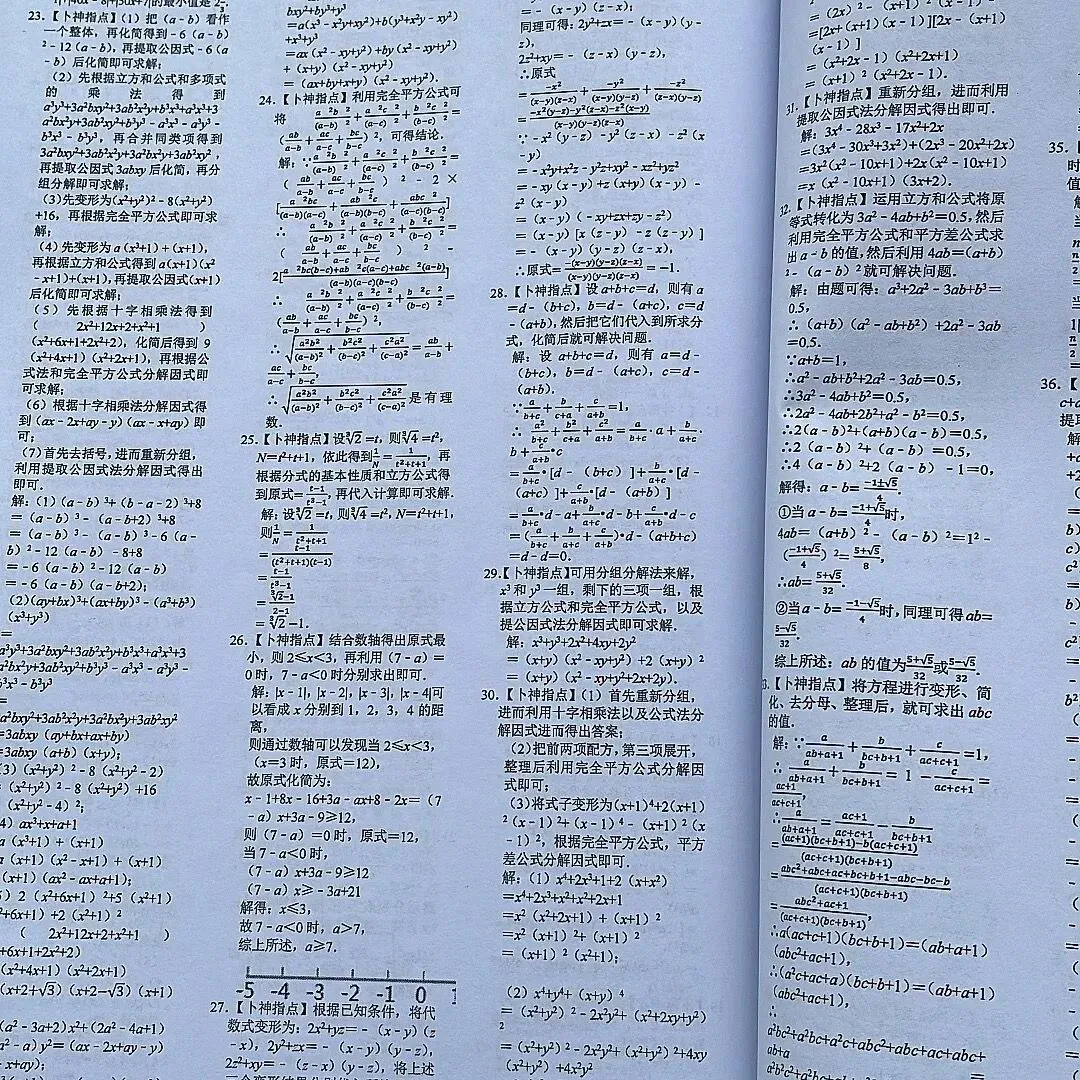 23.【卜神指点】(1)把(a-b)看作
一个整体，再化简得到-6(a-b)
²-12(a-b)，再提取公因式-6(a
-b)后化简即可求解；
(2)先根据立方和公式和多项式
的乘法得到
a³y³+3a²bxy²+3ab²x²y+b³x³+a³x³+3
a²bx²y+3ab²xy²+b³y³-a³x³-a³y³-
b³x³-b³y³，再合并同类项得到
3a²bxy²+3ab²x²y+3a²bx²y+3ab²xy²，
再提取公因式3abxy后化简，再分
组分解即可求解；
(3)先变形为(x²+y²)²-8(x²+y²)
+16，再根据完全平方公式即可求
解；
(4)先变形为a(x³+1)+(x+1)，
再根据立方和公式得到a(x+1)(x²
-x+1)+(x+1)，再提取公因式(x+1)
后化简即可求解；
(5)先根据十字相乘法得到
(2x²+12x+2+x²+1)
(x²+6x+1+2x²+2)，化简后得到9
(x²+4x+1)(x²+2x+1)，再根据公
式法和完全平方公式分解因式即
可求解；
(6)根据十字相乘法分解因式得
到(ax-2x+ay-y)(ax-x+ay)即
可；
(7)首先去括号，进而重新分组，
利用提取公因式法分解因式得出
即可．
解：(1)(a-b)³+(b-a-2)³+8
=(a-b)³-(a-b+2)³+8
=(a-b)³-(a-b)³-6(a-
b)²-12(a-b)-8+8
=-6(a-b)²-12(a-b)
=-6(a-b)(a-b+2)；
(2)(ay+bx)³+(ax+by)³-(a³+b³)
(x³+y³)
=
a³y³+3a²bxy²+3ab²x²y+b³x³+a³x³+3
a²bx²y+3ab²xy²+b³y³-a³x³-a³y³-
b³x³-b³y³
=
a²bxy²+3ab²x²y+3a²bx²y+3ab²xy²
=3abxy(ay+bx+ax+by)
=3abxy(a+b)(x+y)；
3)(x²+y²)²-8(x²+y²-2)
(x²+y²)²-8(x²+y²)+16
(x²+y²-4)²；
4)ax³+x+a+1
a(x³+1)+(x+1)
a(x+1)(x²-x+1)+(x+1)
(x+1)(ax²-ax+a+1)；
)2(x²+6x+1)²+5(x²+1)
²+6x+1)+2(x²+1)²
(2x²+12x+2+x²+1)
+6x+1+2x²+2)
(x²+4x+1)(x²+2x+1)
(x+2+√3)(x+2-√3)(x+1)
(a²-3a+2)x²+(2a²-4a+1)
a²-a)y²=(ax-2x+ay-y)
-x+ay)；
bxy²+by³+y³
=a(x³-x²y+xy²)+b(y³+x²y-xy²)
+x³+y³
=ax(x²-xy+y²)+by(x²-xy+y²)
+(x+y)(x²-xy+y²)
=(ax+by+x+y)(x²-xy+y²)．
24.【卜神指点】利用完全平方公式可
将a²b²/(a-b)²+a²c²/(a-c)²+b²c²/(b-c)²=
(ab/(a-b)+ac/(a-c)+bc/(b-c))²，可得结论．
解：∵a²b²/(a-b)²+a²c²/(a-c)²+b²c²/(b-c)²=
(ab/(a-b)+ac/(a-c)+bc/(b-c))²-2×
[a²bc/((a-b)(a-c))+ab²c/((a-b)(b-c))+abc²/((a-c)(b-c))]
∴a²b²/(a-b)²+a²c²/(a-c)²+b²c²/(b-c)²=
(ab/(a-b)+ac/(a-c)+bc/(b-c))²-
2[(a²bc(b-c)+ab²c(a-c)+abc²(a-b))/((a-b)(a-c)(b-c))]
∴a²b²/(a-b)²+a²c²/(a-c)²+b²c²/(b-c)²=
(ab/(a-b)+ac/(a-c)+bc/(b-c))²，
∴√(a²b²/(a-b)²+b²c²/(b-c)²+c²a²/(c-a)²)=ab/(a-b)+
ac/(a-c)+bc/(b-c)，
∴√(a²b²/(a-b)²+b²c²/(b-c)²+c²a²/(c-a)²)是有理
数．
25.【卜神指点】设∛2=t，则∛4=t²，
N=t²+t+1，依此得到1/N=1/(t²+t+1)，再
根据分式的基本性质和立方公式得
到原式=(t-1)/(t³-1)，再代入计算即可求解．
解：设∛2=t，则∛4=t²，N=t²+t+1，
则1/N=1/(t²+t+1)
=(t-1)/((t²+t+1)(t-1))
=(t-1)/(t³-1)
=(∛2-1)/(2-1)
=∛2-1．
26.【卜神指点】结合数轴得出原式最
小，则2≤x<3，再利用(7-a)=
0时，7-a<0时分别求出即可．
解：|x-1|，|x-2|，|x-3|，|x-4|可
以看成x分别到1，2，3，4的距
离，
则通过数轴可以发现当2≤x<3，
(x=3时，原式=12)，
故原式化简为：
x-1+8x-16+3a-ax+8-2x=(7
-a)x+3a-9≥12，
则(7-a)=0时，原式=12，
当7-a<0时，
(7-a)x+3a-9≥12
(7-a)x≥-3a+21
解得：x≤3，
故7-a<0时，a>7，
综上所述，a≥7．
-5 -4 -3 -2 -1 0 1
27.【卜神指点】根据已知条件，将代
数式变形为：2x²+yz=-(x-y)(z
-x)，2y²+zx=-(x-y)(y-z)，
2z²+xy=-(z-x)(y-z)，将上述
同理可得：2y²+zx=-(x-y)(y-
z)，
2z²+xy=-(z-x)(y-z)，
∴原式
=-x²/((x-y)(z-x))+-y²/((x-y)(y-z))+-z²/((z-x)(y-z))
=(-x²(y-z)-y²(z-x)-z²(x-y))/((x-y)(y-z)(z-x))
∵-x²(y-z)-y²(z-x)-z²(x
-y)
=-x²y+x²z-y²z+xy²-xz²+yz²
=-xy(x-y)+z(x+y)(x-y)-
z²(x-y)
=(x-y)(-xy+zx+zy-z²)
=(x-y)[x(z-y)-z(z-y)]
=-(x-y)(y-z)(z-x)，
∴原式=(x-y)(y-z)(z-x)/((x-y)(y-z)(z-x))=-1．
28.【卜神指点】设a+b+c=d，则有a
=d-(b+c)，b=d-(a+c)，c=d
-(a+b)，然后把它们代入到所求分
式，化简后就可解决问题．
解：设a+b+c=d，则有a=d-
(b+c)，b=d-(a+c)，c=d-
(a+b)．
∵a/(b+c)+b/(c+a)+c/(a+b)=1，
∴a²/(b+c)+b²/(c+a)+c²/(a+b)=a/(b+c)·a+b/(a+c)·
b+c/(a+b)·c
=a/(b+c)·[d-(b+c)]+b/(a+c)·[d-
(a+c)]+c/(a+b)·[d-(a+b)]
=a/(b+c)·d-a+b/(a+c)·d-b+c/(a+b)·d-c
=(a/(b+c)+b/(a+c)+c/(a+b))·d-(a+b+c)
=d-d=0．
29.【卜神指点】可用分组分解法来解，
x³和y³一组，剩下的三项一组，根
据立方公式和完全平方公式，以及
提公因式法分解因式即可求解．
解：x³+y³+2x²+4xy+2y²
=(x+y)(x²-xy+y²)+2(x+y)²
=(x+y)(x²-xy+y²+2x+2y)．
30.【卜神指点】(1)首先重新分组，
进而利用十字相乘法以及公式法分
解因式进而得出答案；
(2)把前两项配方，第三项展开，
整理后利用完全平方公式分解因
式即可；
(3)将式子变形为(x+1)⁴+2(x+1)
²(x-1)²+(x-1)⁴-(x+1)²(x
-1)²，根据完全平方公式，平方
差公式分解因式即可．
解：(1)x⁴+2x³+1+2(x+x²)
=x⁴+2x³+x²+x²+2x+1
=x²(x²+2x+1)+(x+1)²
=x²(x+1)²+(x+1)²
=(x+1)²(x²+1)；
(2)x⁴+y⁴+(x+y)⁴
=(x²+y²)²-2x²y²+(x²+2xy+y²)
²
=(x²+y²)²-2x²y²+(x²+y²)²+4xy
(x²+y²)+4x²y²
=[2x+(x+1)(x-1)][2x-(x+1)
(x-1)]
=(x²+2x-1)(x²+2x+1)
=(x+1)²(x²+2x-1)．
31.【卜神指点】重新分组，进而利用
提取公因式法分解因式得出即可．
解：3x⁴-28x³-17x²+2x
=(3x⁴-30x³+3x²)+(2x³-20x²+2x)
=3x²(x²-10x+1)+2x(x²-10x+1)
=x(x²-10x+1)(3x+2)．
32.【卜神指点】运用立方和公式将原
等式转化为3a²-4ab+b²=0.5，然后
利用完全平方公式和平方差公式求
出a-b的值，然后利用4ab=(a+b)
²-(a-b)²就可解决问题．
解：由题可得：a³+2a²-3ab+b³=
0.5，
∴(a+b)(a²-ab+b²)+2a²-3ab
=0.5．
∵a+b=1，
∴a²-ab+b²+2a²-3ab=0.5，
∴3a²-4ab+b²=0.5，
∴2a²-4ab+2b²+a²-b²=0.5，
∴2(a-b)²+(a+b)(a-b)=0.5，
∴2(a-b)²+(a-b)=0.5，
∴4(a-b)²+2(a-b)-1=0，
解得：a-b=(-1±√5)/4．
①当a-b=(-1+√5)/4时，
4ab=(a+b)²-(a-b)²=1²-
((-1+√5)/4)²=(5+√5)/8，
∴ab=(5+√5)/32．
②当a-b=(-1-√5)/4时，同理可得ab=
(5-√5)/32．
综上所述：ab的值为(5+√5)/32或(5-√5)/32．
3.【卜神指点】将方程进行变形、简
化、去分母、整理后，就可求出abc
的值．
解：∵a/(ab+a+1)+b/(bc+b+1)+c/(ac+c+1)=1，
∴a/(ab+a+1)+b/(bc+b+1)=1-c/(ac+c+1)=
(ac+1)/(ac+c+1)，
∴a/(ab+a+1)=(ac+1)/(ac+c+1)-b/(bc+b+1)
=((ac+1)(bc+b+1)-b(ac+c+1))/((ac+c+1)(bc+b+1))
=(abc²+abc+ac+bc+b+1-abc-bc-b)/((ac+c+1)(bc+b+1))
=(abc²+ac+1)/((ac+c+1)(bc+b+1))，
∴a(ac+c+1)(bc+b+1)=(ab+a+1)
(abc²+ac+1)，
∴(a²c+ac+a)(bc+b+1)=(ab+a+1)
(abc²+ac+1)，
∴
a²bc²+a²bc+a²c+abc²+abc+ac+abc+
ab+a
35.【
36.【